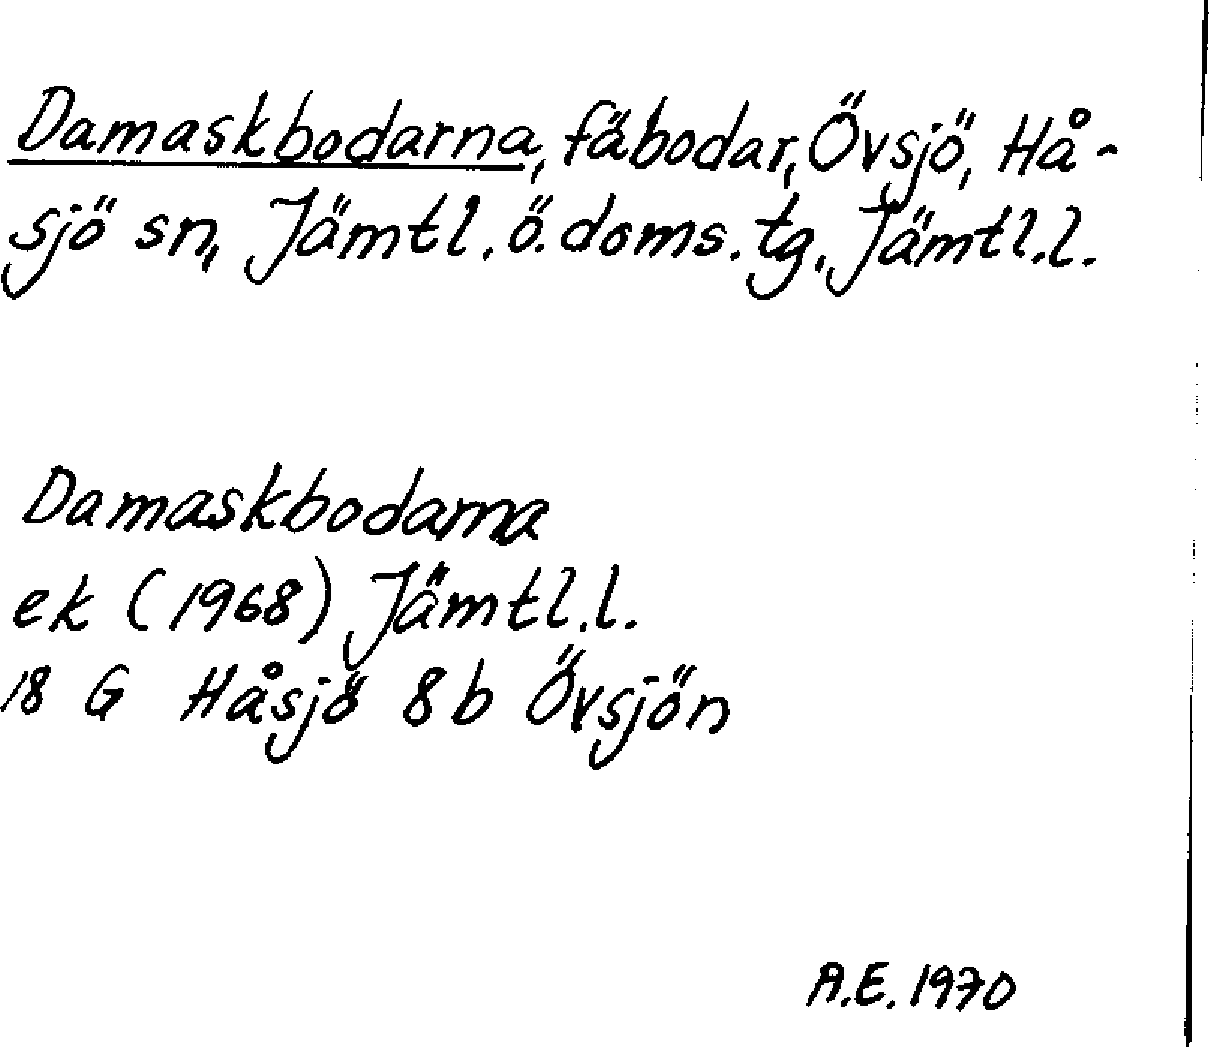 Damaskbodarna, fäbodar, Övsjö, Hå-
sjö sn, Jämtl. ö. doms. tg, Jämtl.l.
Damaskbodarna
ek (1968) Jämtl.l.
18 G Håsjö 8b Övsjön
A.E. 1970